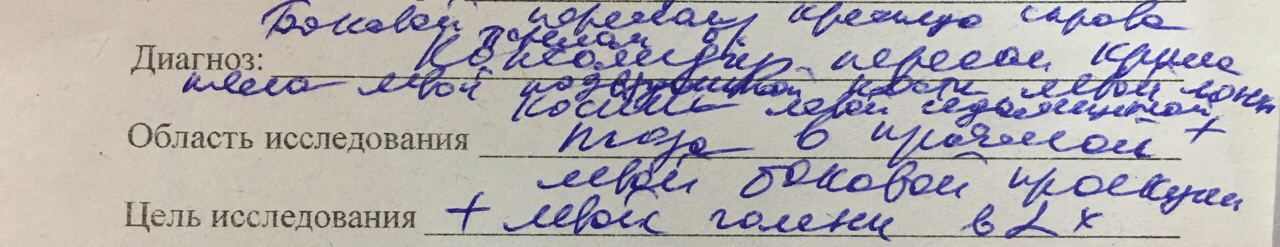 Боковой перелом крестца справа
перелом
Диагноз: Консолидир. перелом крыла
тела левой подвздошной кости левой лонн
кости левой седалищной
Область исследования таза в прямой +
левой боковой проекции
Цель исследования + левой голени в 2х